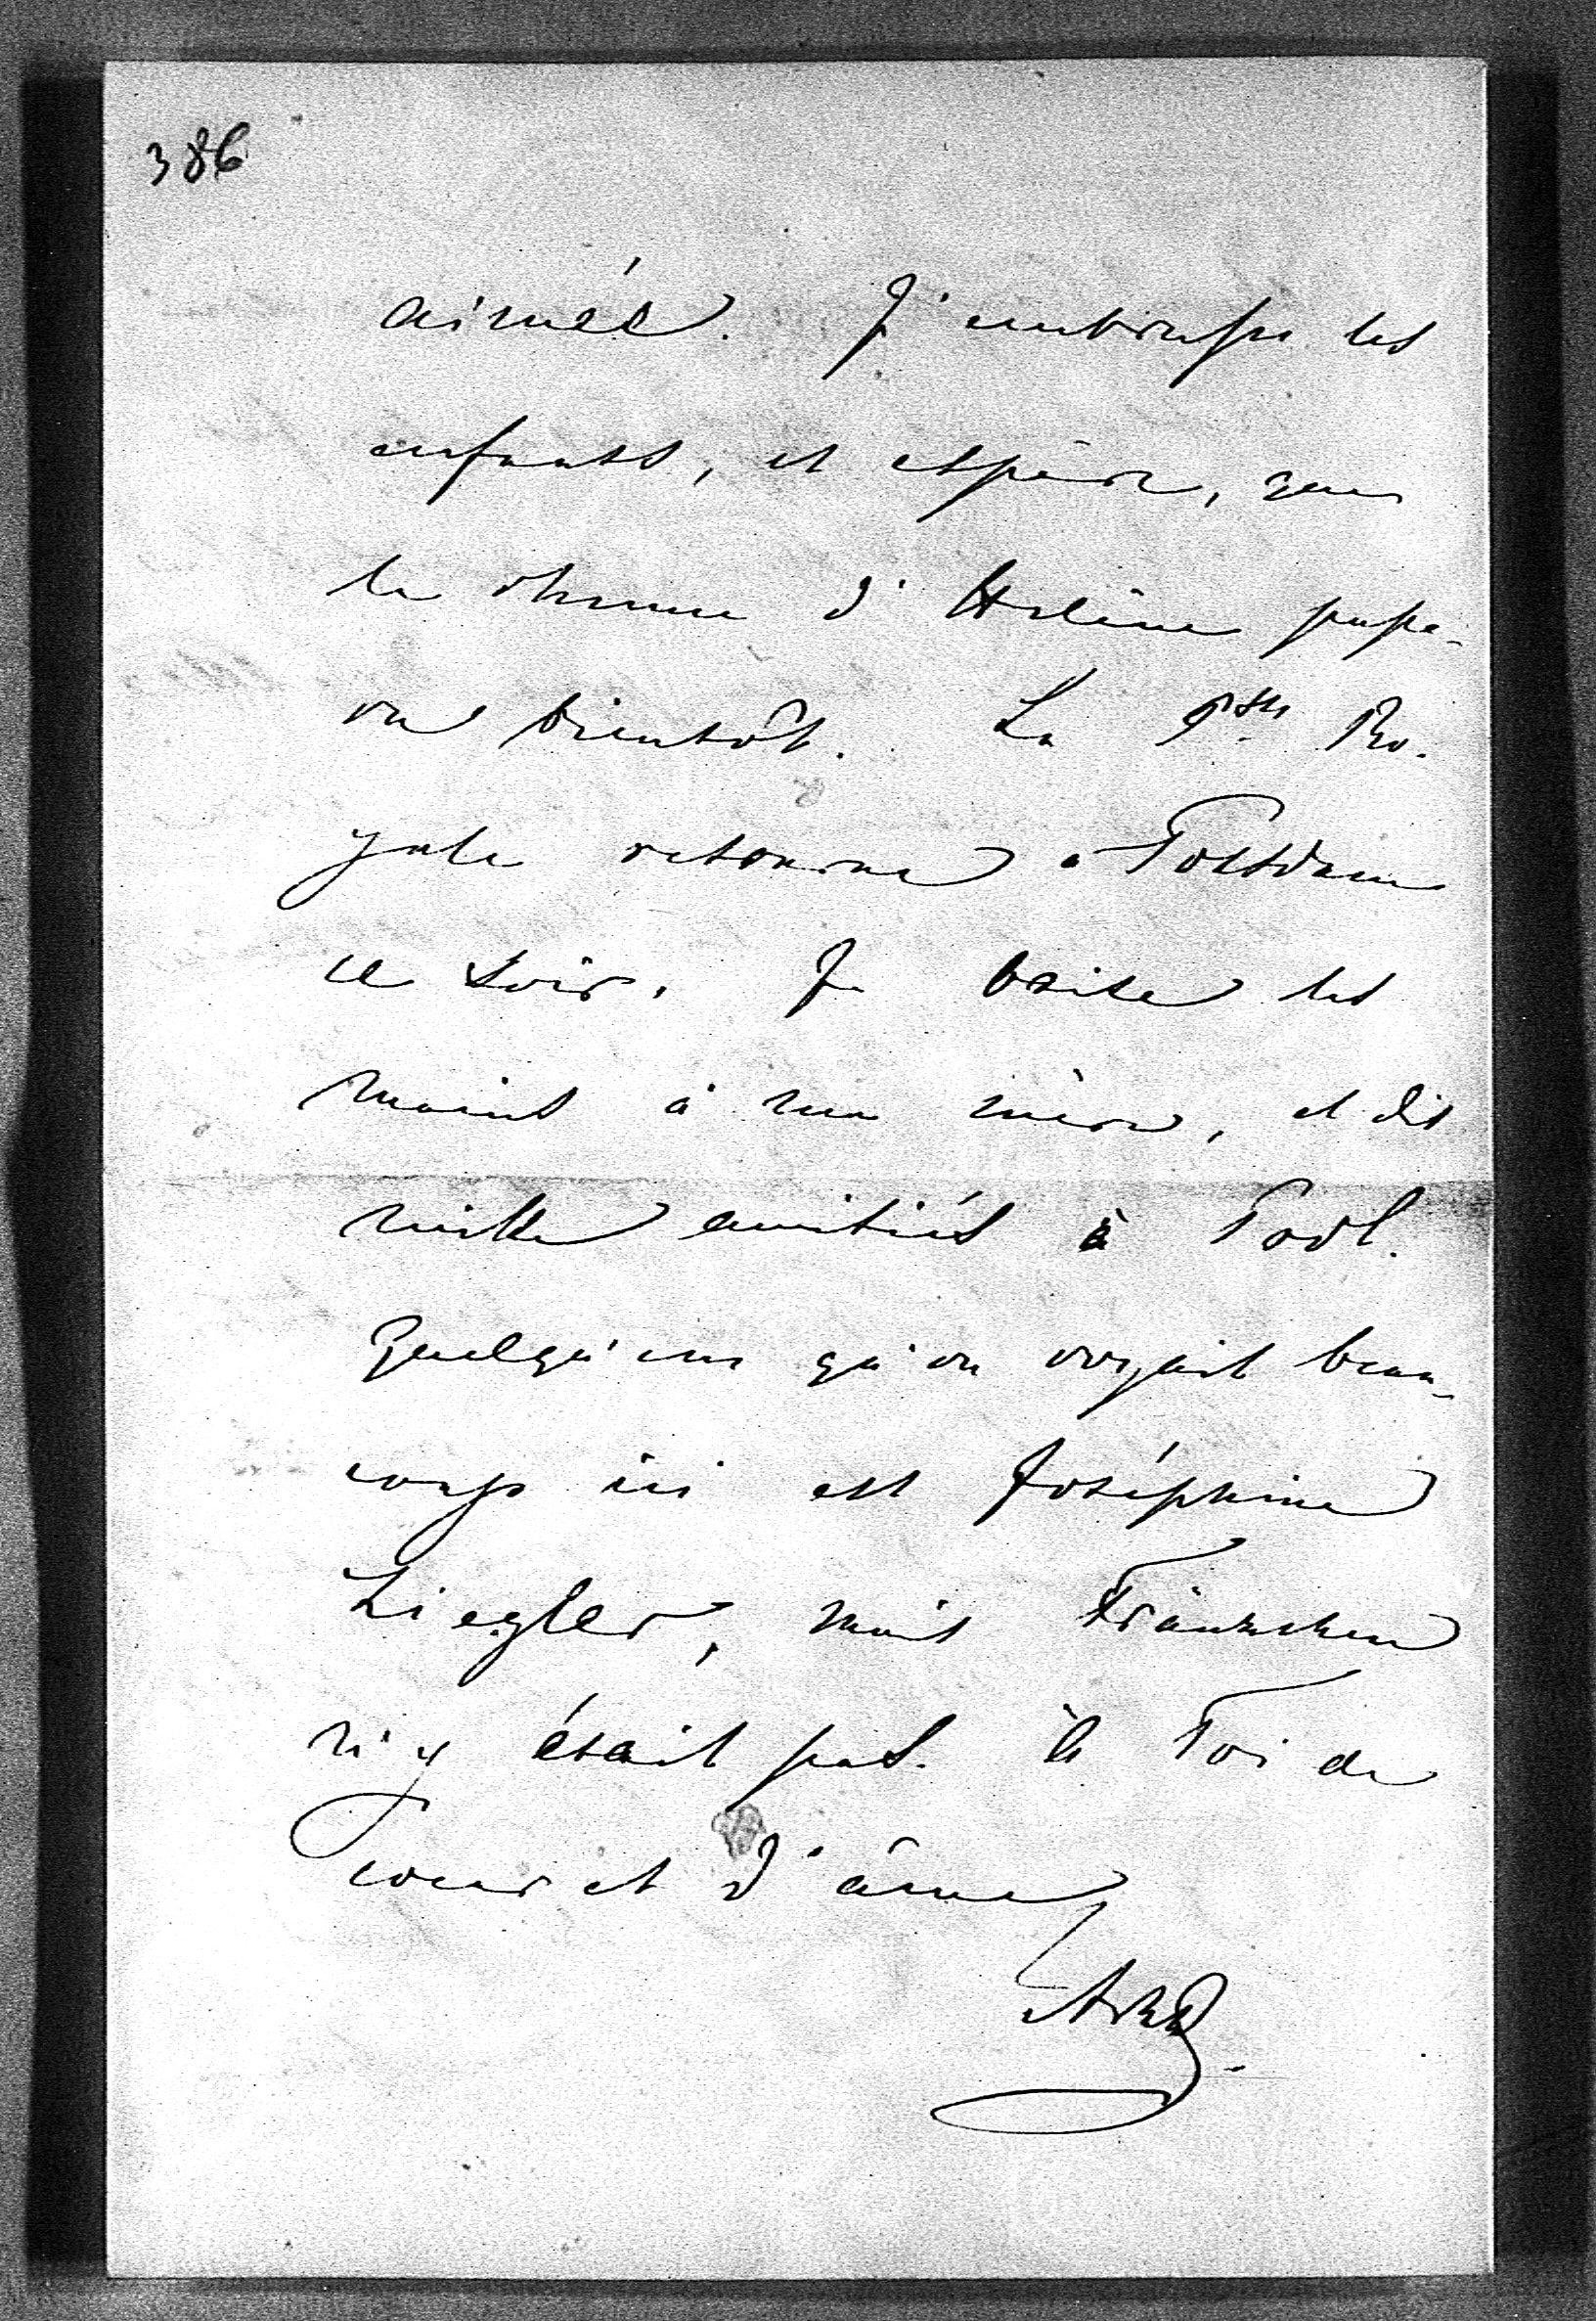 386
aimée. J'embrasse les
enfants, et espère, que
le rhume d'Hélène passe-
ra bientôt. La Psse Ro-
yale retourne à Potsdam
ce soir. Je baise les
mains à ma mère, et dis
mille amitiés à
Quelqu'un qu'on voyait beau-
coup ici est Joséphine
Ziegler, mais Fränzchen
n'y était pas. à Toi de
coeur et d'âme